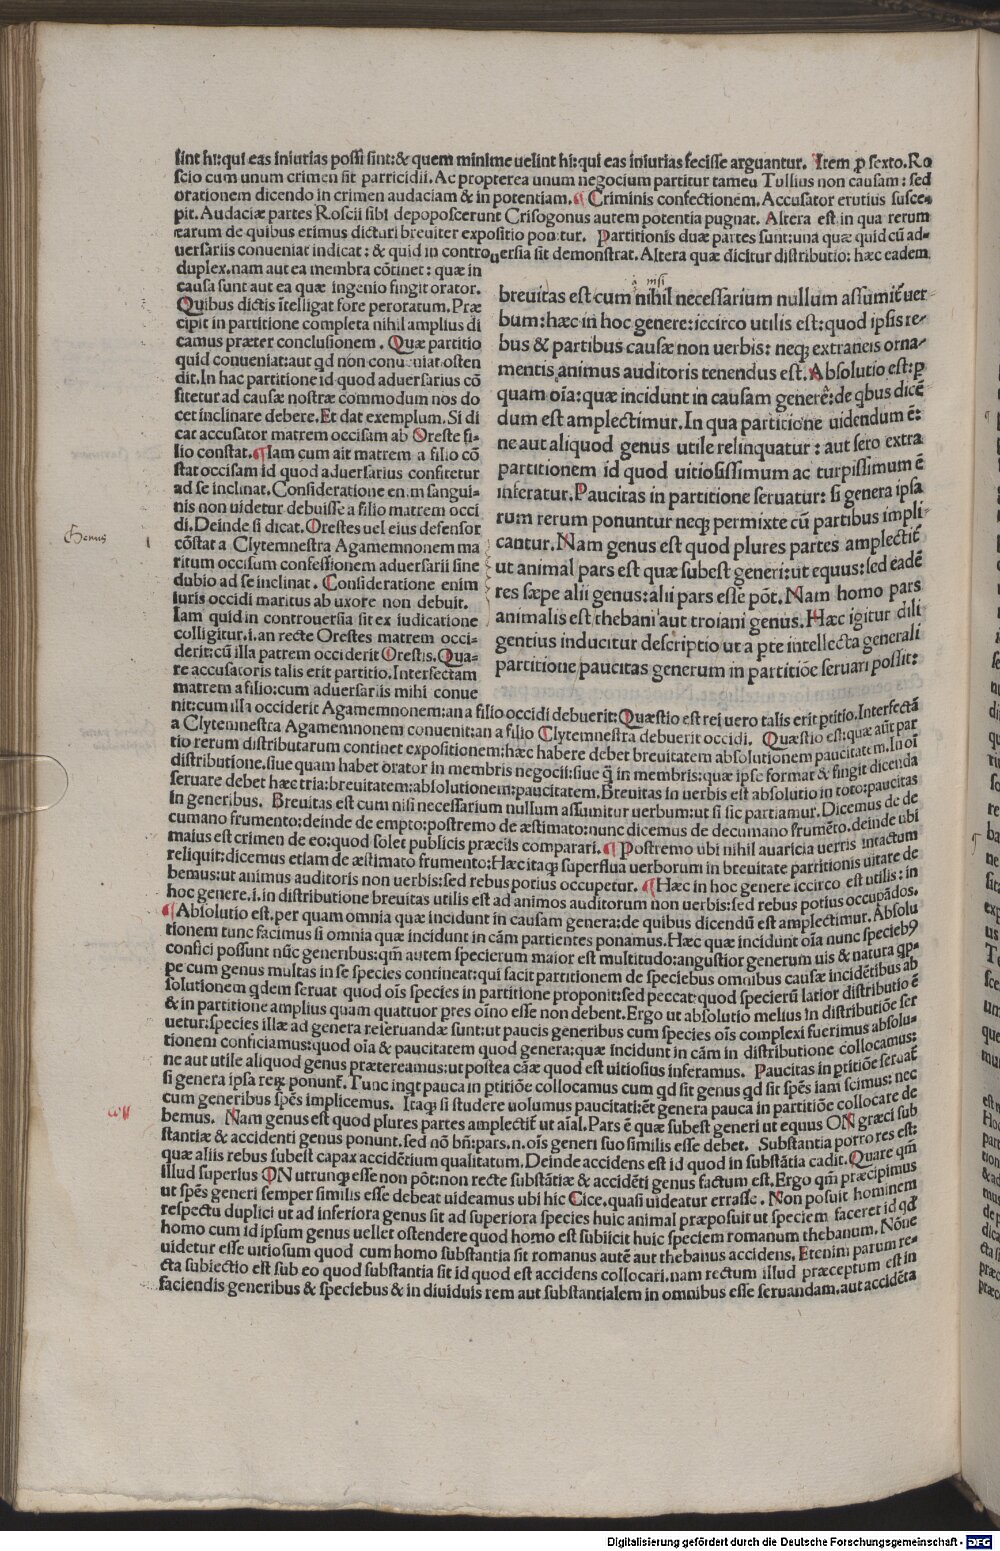 sint hi:qui eas iniurias possi sint:& quem minime uelint hi:qui eas iniurias fecisse arguantur. Item ꝓ sexto.Ro
scio cum unum crimen sit parricidii.Ac propterea unum negocium partitur tameu Tullius non causam: sed
orationem dicendo in crimen audaciam & in potentiam.¶ Criminis confectionem.Accusator erutius susce-
pit.Audaciæ partes Roscii sibi depoposcerunt Crisogonus autem potentia pugnat. Altera est in qua rerum
earum de quibus erimus dicturi breuiter expositio ponitur. Partitionis duæ partes sunt:una quæ quid cū ad-
uersariis conueniat indicat: & quid in controuersia sit demonstrat.Altera quæ dicitur distributio: hæc eadem
duplex.nam aut ea membra cōtinet: quæ in
causa sunt aut ea quæ ingenio fingit orator.
Quibus dictis ītelligat fore peroratum.Præ
cipit in partitione completa nihil amplius di
camus præter conclusionem. Quæ partitio
quid conueniat:aut qd non conueniat osten
dit.In hac partitione id quod aduersarius cō
fitetur ad causæ nostræ commodum nos do
cet inclinare debere.Et dat exemplum.Si di
cat accusator matrem occisam ab Oreste fi-
lio constat.¶Iam cum ait matrem a filio cō
stat occisam id quod aduersarius confitetur
ad se inclinat.Consideratione enim sangui-
nis non uidetur debuisse a filio matrem occi
di.Deinde si dicat.Orestes uel eius defensor
cōstat a Clytemnestra Agamemnonem ma
ritum occisum confessionem aduersarii sine
dubio ad se inclinat. Consideratione enim
iuris occidi maritus ab uxore non debuit.
Iam quid in controuersia sit ex iudicatione
colligitur.i.an recte Orestes matrem occi-
derit:cū illa patrem occiderit Orestis.Qua-
re accusatoris talis erit partitio.Interfectam
matrem a filio:cum aduersariis mihi conue
à nisi
breuitas est cum nihil necessarium nullum assumit̄ uer
bum:hæc in hoc genere:iccirco utilis est:quod ipsis re-
bus & partibus causæ non uerbis: neqꝫ extraneis orna-
mentis animus auditoris tenendus est.Absolutio est:ꝑ
quam oīa:quæ incidunt in causam genere:de qbus dicē
dum est amplectimur.In qua partitione uidendum ē:
ne aut aliquod genus utile relinquatur: aut sero extra
partitionem id quod uitiosissimum ac turpissimum ē
inferatur.Paucitas in partitione seruatur: si genera ipsa
rum rerum ponuntur neqꝫ permixte cū partibus impli-
cantur.Nam genus est quod plures partes amplectit̄
ut animal pars est quæ subest generi:ut equus:sed eadē
res sæpe alii genus:alii pars esse pōt.Nam homo pars
animalis est thebani aut troiani genus.Hæc igitur dili
gentius inducitur descriptio ut a pte intellecta generali
partitione paucitas generum in partitiōe seruari possit:
Genus
nit:cum illa occiderit Agamemnonem:an a filio occidi debuerit:Quæstio est rei uero talis erit ptitio.Interfectā
a Clytemnestra Agamemnonem conuenit:an a filio Clytemnestra debuerit occidi. Quæstio est:quæ aūt par
tio rerum distributarum continet expositionem:hæc habere debet breuitatem absolutionem paucitatem.In oī
distributione.siue quam habet orator in membris negocii:siue q̄ in membris:quæ ipse format & fingit dicenda
seruare debet hæc tria:breuitatem:absolutionem:paucitatem.Breuitas in uerbis est absolutio in toto:paucitas
in generibus. Breuitas est cum nisi necessarium nullum assumitur uerbum:ut si sic partiamur.Dicemus de de
cumano frumento:deinde de empto:postremo de æstimato:nunc dicemus de decumano frumēto.deinde ubi
maius est crimen de eo:quod solet publicis præciis comparari.¶ Postremo ubi nihil auaricia uerris intactum
reliquit:dicemus etiam de æstimato frumento:Hæc itaqꝫ superflua uerborum in breuitate partitionis uitare de
bemus:ut animus auditoris non uerbis:sed rebus potius occupetur. ¶Hæc in hoc genere iccirco est utilis: in
hoc genere.i.in distributione breuitas utilis est ad animos auditorum non uerbis:sed rebus potius occupādos.
¶Absolutio est.per quam omnia quæ incidunt in causam genera:de quibus dicendū est amplectimur.Absolu
tionem tunc facimus si omnia quæ incidunt in cām partientes ponamus.Hæc quæ incidunt oīa nunc specieb9
confici possunt nūc generibus:qm̄ autem specierum maior est multitudo:angustior generum uis & natura qp-
pe cum genus multas in se species contineat:qui facit partitionem de speciebus omnibus causæ incidētibus ab
solutionem qdem seruat quod oīs species in partitione proponit:sed peccat:quod specierū latior distributio ē
& in partitione amplius quam quattuor pres oīno esse non debent.Ergo ut absolutio melius in distributiōe ser
uetur:species illæ ad genera referuandæ sunt:ut paucis generibus cum species oīs complexi fuerimus absolu-
tionem conficiamus:quod oīa & paucitatem quod genera:quæ incidunt in cām in distributione collocamus:
ne aut utile aliquod genus prætereamus:ut postea cāæ quod est uitiosius inferamus. Paucitas in ptitiōe seruat̄
si genera ipsa reꝝ ponunt̄.Tunc inqt pauca in ptitiōe collocamus cum qd sit genus qd sit spēs iam scimus: nec
cum generibus spēs implicemus. Itaqꝫ si studere uolumus paucitati:ēt genera pauca in partitiōe collocare de
bemus. Nam genus est quod plures partes amplectit̄ ut aīal.Pars ē quæ subest generi ut equus ON græci sub
stantiæ & accidenti genus ponunt.sed nō bn̄:pars.n.oīs generi suo similis esse debet. Substantia porro res est:
quæ aliis rebus subest capax accidētium qualitatum.Deinde accidens est id quod in substātia cadit.Quare qm̄
illud superius ON utrunqꝫ esse non pōt:non recte substātiæ & accidēti genus factum est.Ergo qm̄ præcipimus
ut spēs generi semper similis esse debeat uideamus ubi hic Cice.quasi uideatur errasse. Non posuit hominem
respectu duplici ut ad inferiora genus sit ad superiora species huic animal præposuit ut speciem faceret id qd
homo cum id ipsum genus uellet ostendere quod homo est subiicit huic speciem romanum thebanum. Nōne
uidetur esse uitiosum quod cum homo substantia sit romanus autē aut thebanus accidens. Etenim parum re-
cta subiectio est sub eo quod substantia sit id quod est accidens collocari.nam rectum illud præceptum est in
faciendis generibus & speciebus & in diuiduis rem aut substantialem in omnibus esse seruandam.aut accidēta
Digitalisierung gefördert durch die Deutsche Forschungsgemeinschaft - DFG